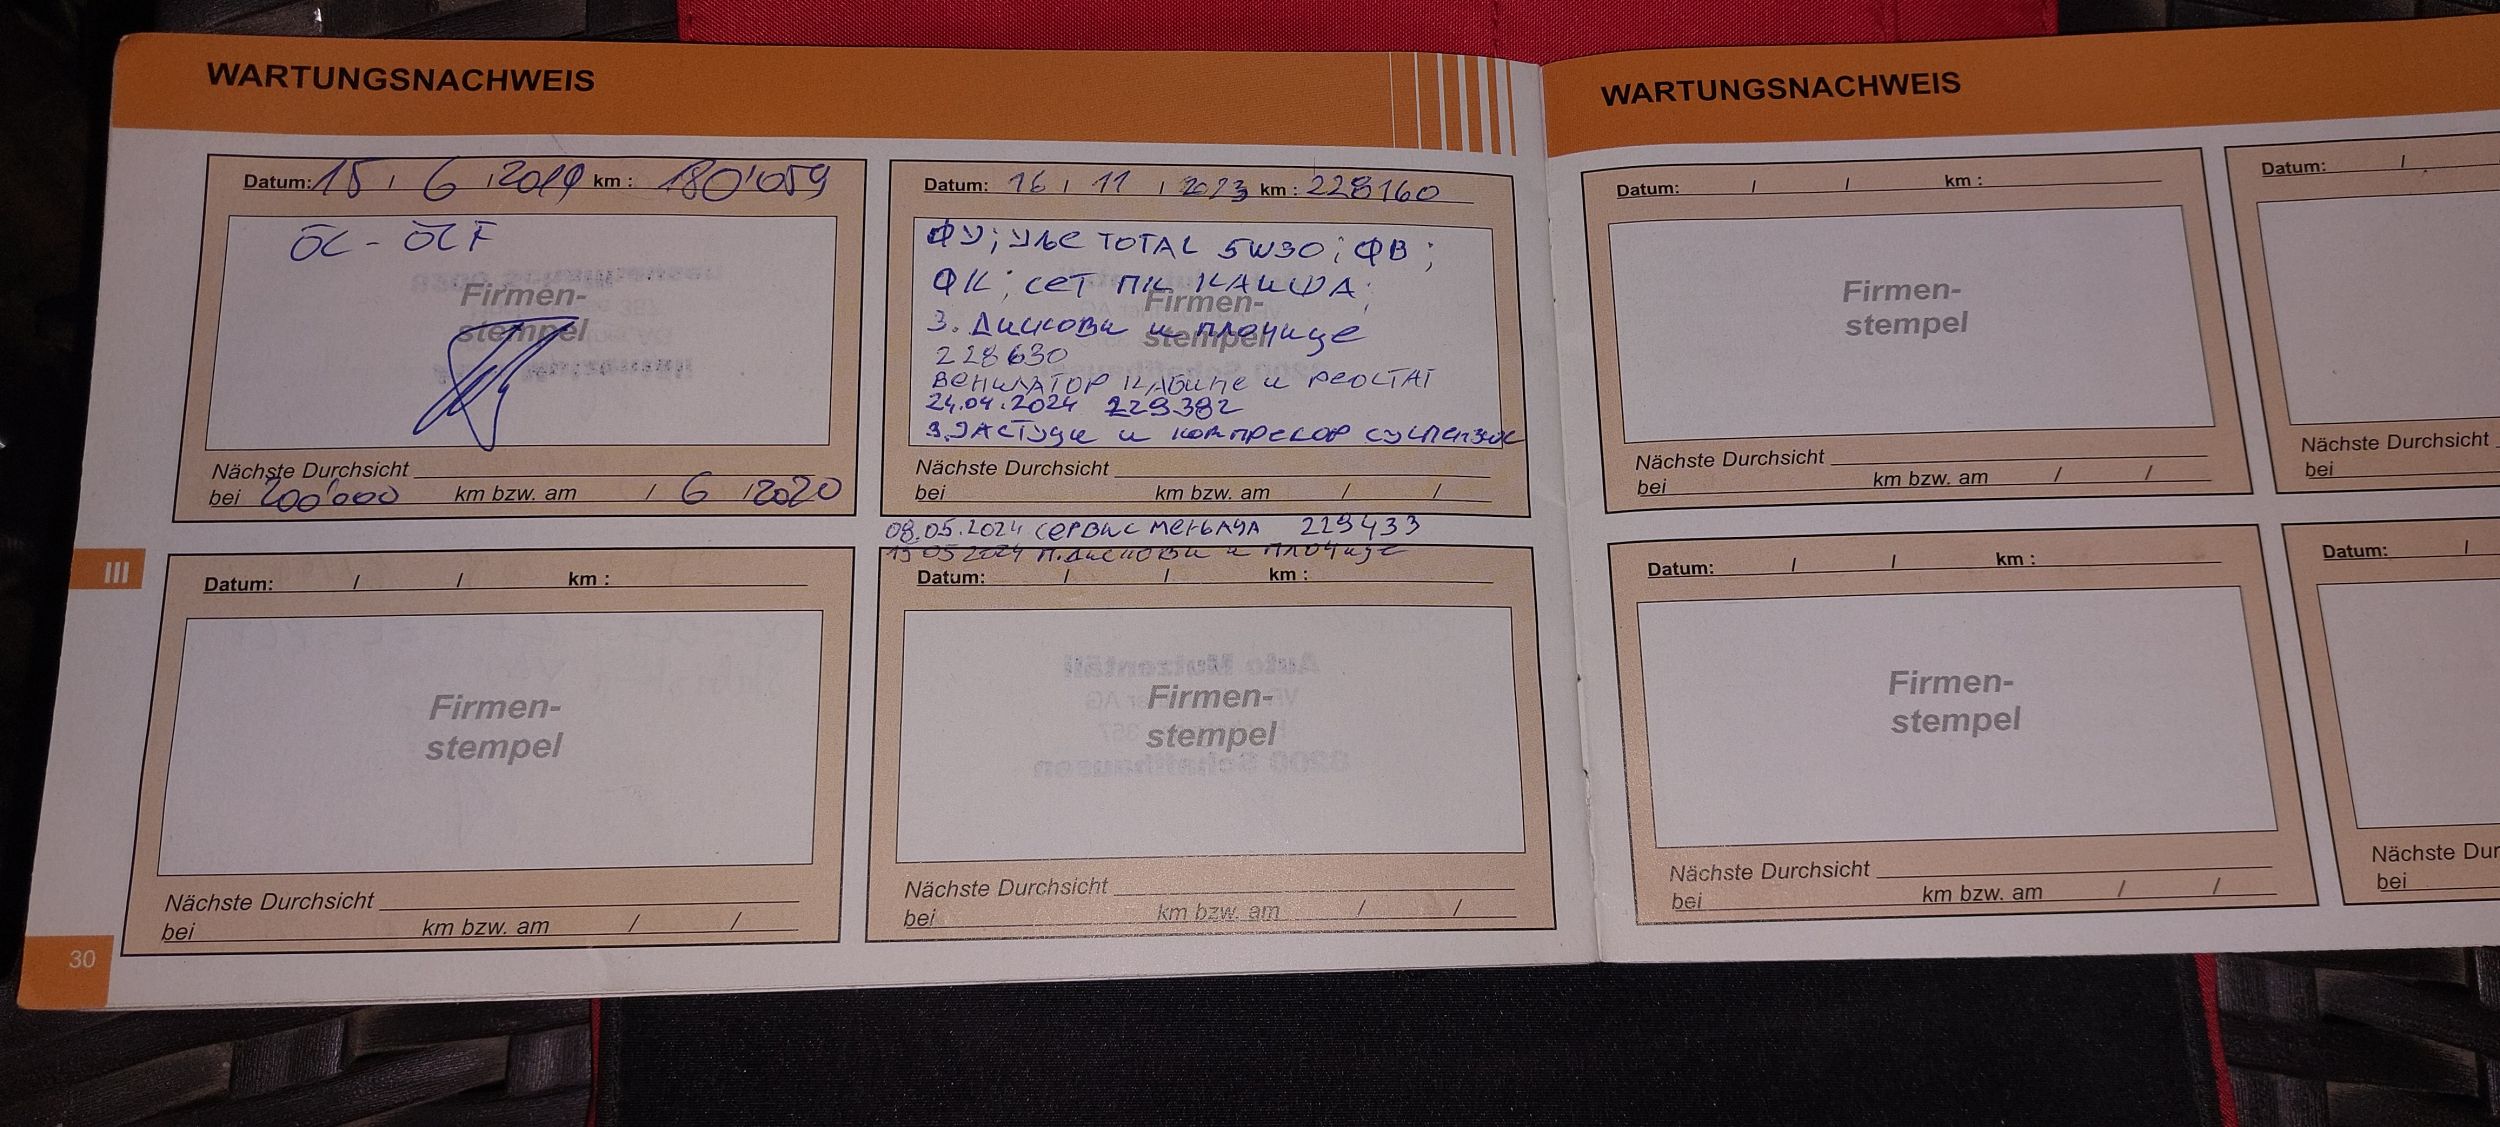 WARTUNGSNACHWEIS
Datum: 15 / 6 / 2019 km : 180'059
ÖL - ÖLF
Firmen-
stempel
Nächste Durchsicht
bei 200'000 km bzw. am / 6 / 2020
Datum: 16 / 11 / 2023 km : 228160
ФУ; УЉЕ TOTAL 5W30; ФВ;
ФК; СЕТ ПК КАИША;
З. Дискови и плочице
Firmen-
stempel
228630
ВЕНИЛАТОР КАБИНЕ и РЕОСТАТ
24.04.2024 229382
З.ЈАСТУЦИ и компресор
Nächste Durchsicht
bei km bzw. am / /
08.05.2024 СЕРВИС МЕЊАЧА 229433
15 05 2024 П.Дискови и плочице
III
Datum: / / km :
Firmen-
stempel
Nächste Durchsicht
bei km bzw. am / /
Datum: / / km :
Firmen-
stempel
Nächste Durchsicht
bei km bzw. am / /
30
WARTUNGSNACHWEIS
Datum: / / km :
Firmen-
stempel
Nächste Durchsicht
bei km bzw. am / /
Datum: /
Nächste Durchsicht
bei
Datum: / / km :
Firmen-
stempel
Nächste Durchsicht
bei km bzw. am / /
Datum: /
Nächste Dur
bei